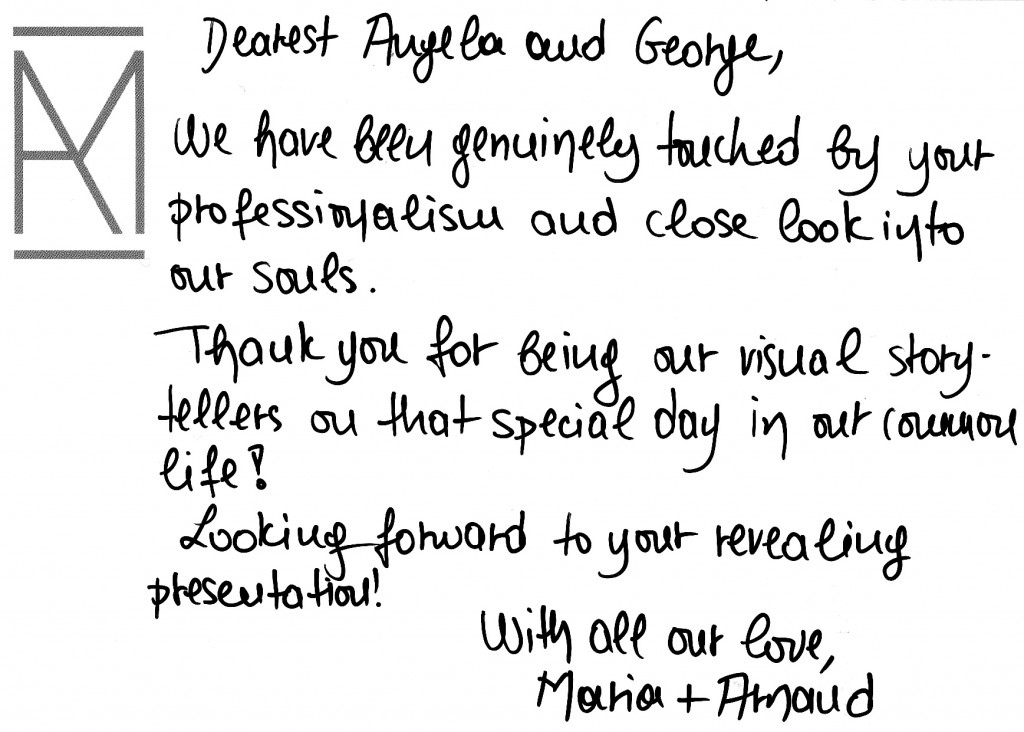 Dearest Angela and George,
We have been genuinely touched by your
professionalism and close look into
our souls.
Thank you for being our visual story-
tellers on that special day in our common
life!
Looking forward to your revealing
presentation!
With all our love,
Maria + Arnaud